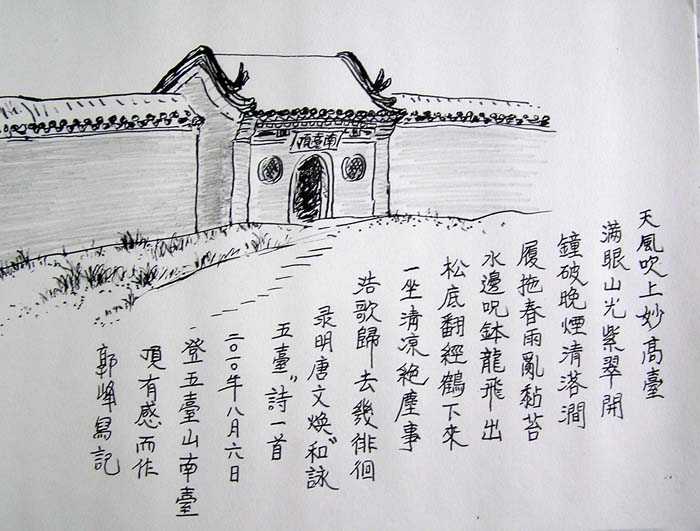 南臺頂
天風吹上妙高臺
满眼山光紫翠開
鐘破晚煙清落澗
履拖春雨亂黏苔
水邊呪鉢龍飛出
松底翻經鶴下來
一坐清凉絶塵事
浩歌歸去幾徘徊
录明唐文焕和“詠
五臺”詩一首
二〇一〇年八月六日
登五臺山南臺
頂有感而作
郭峰寫記